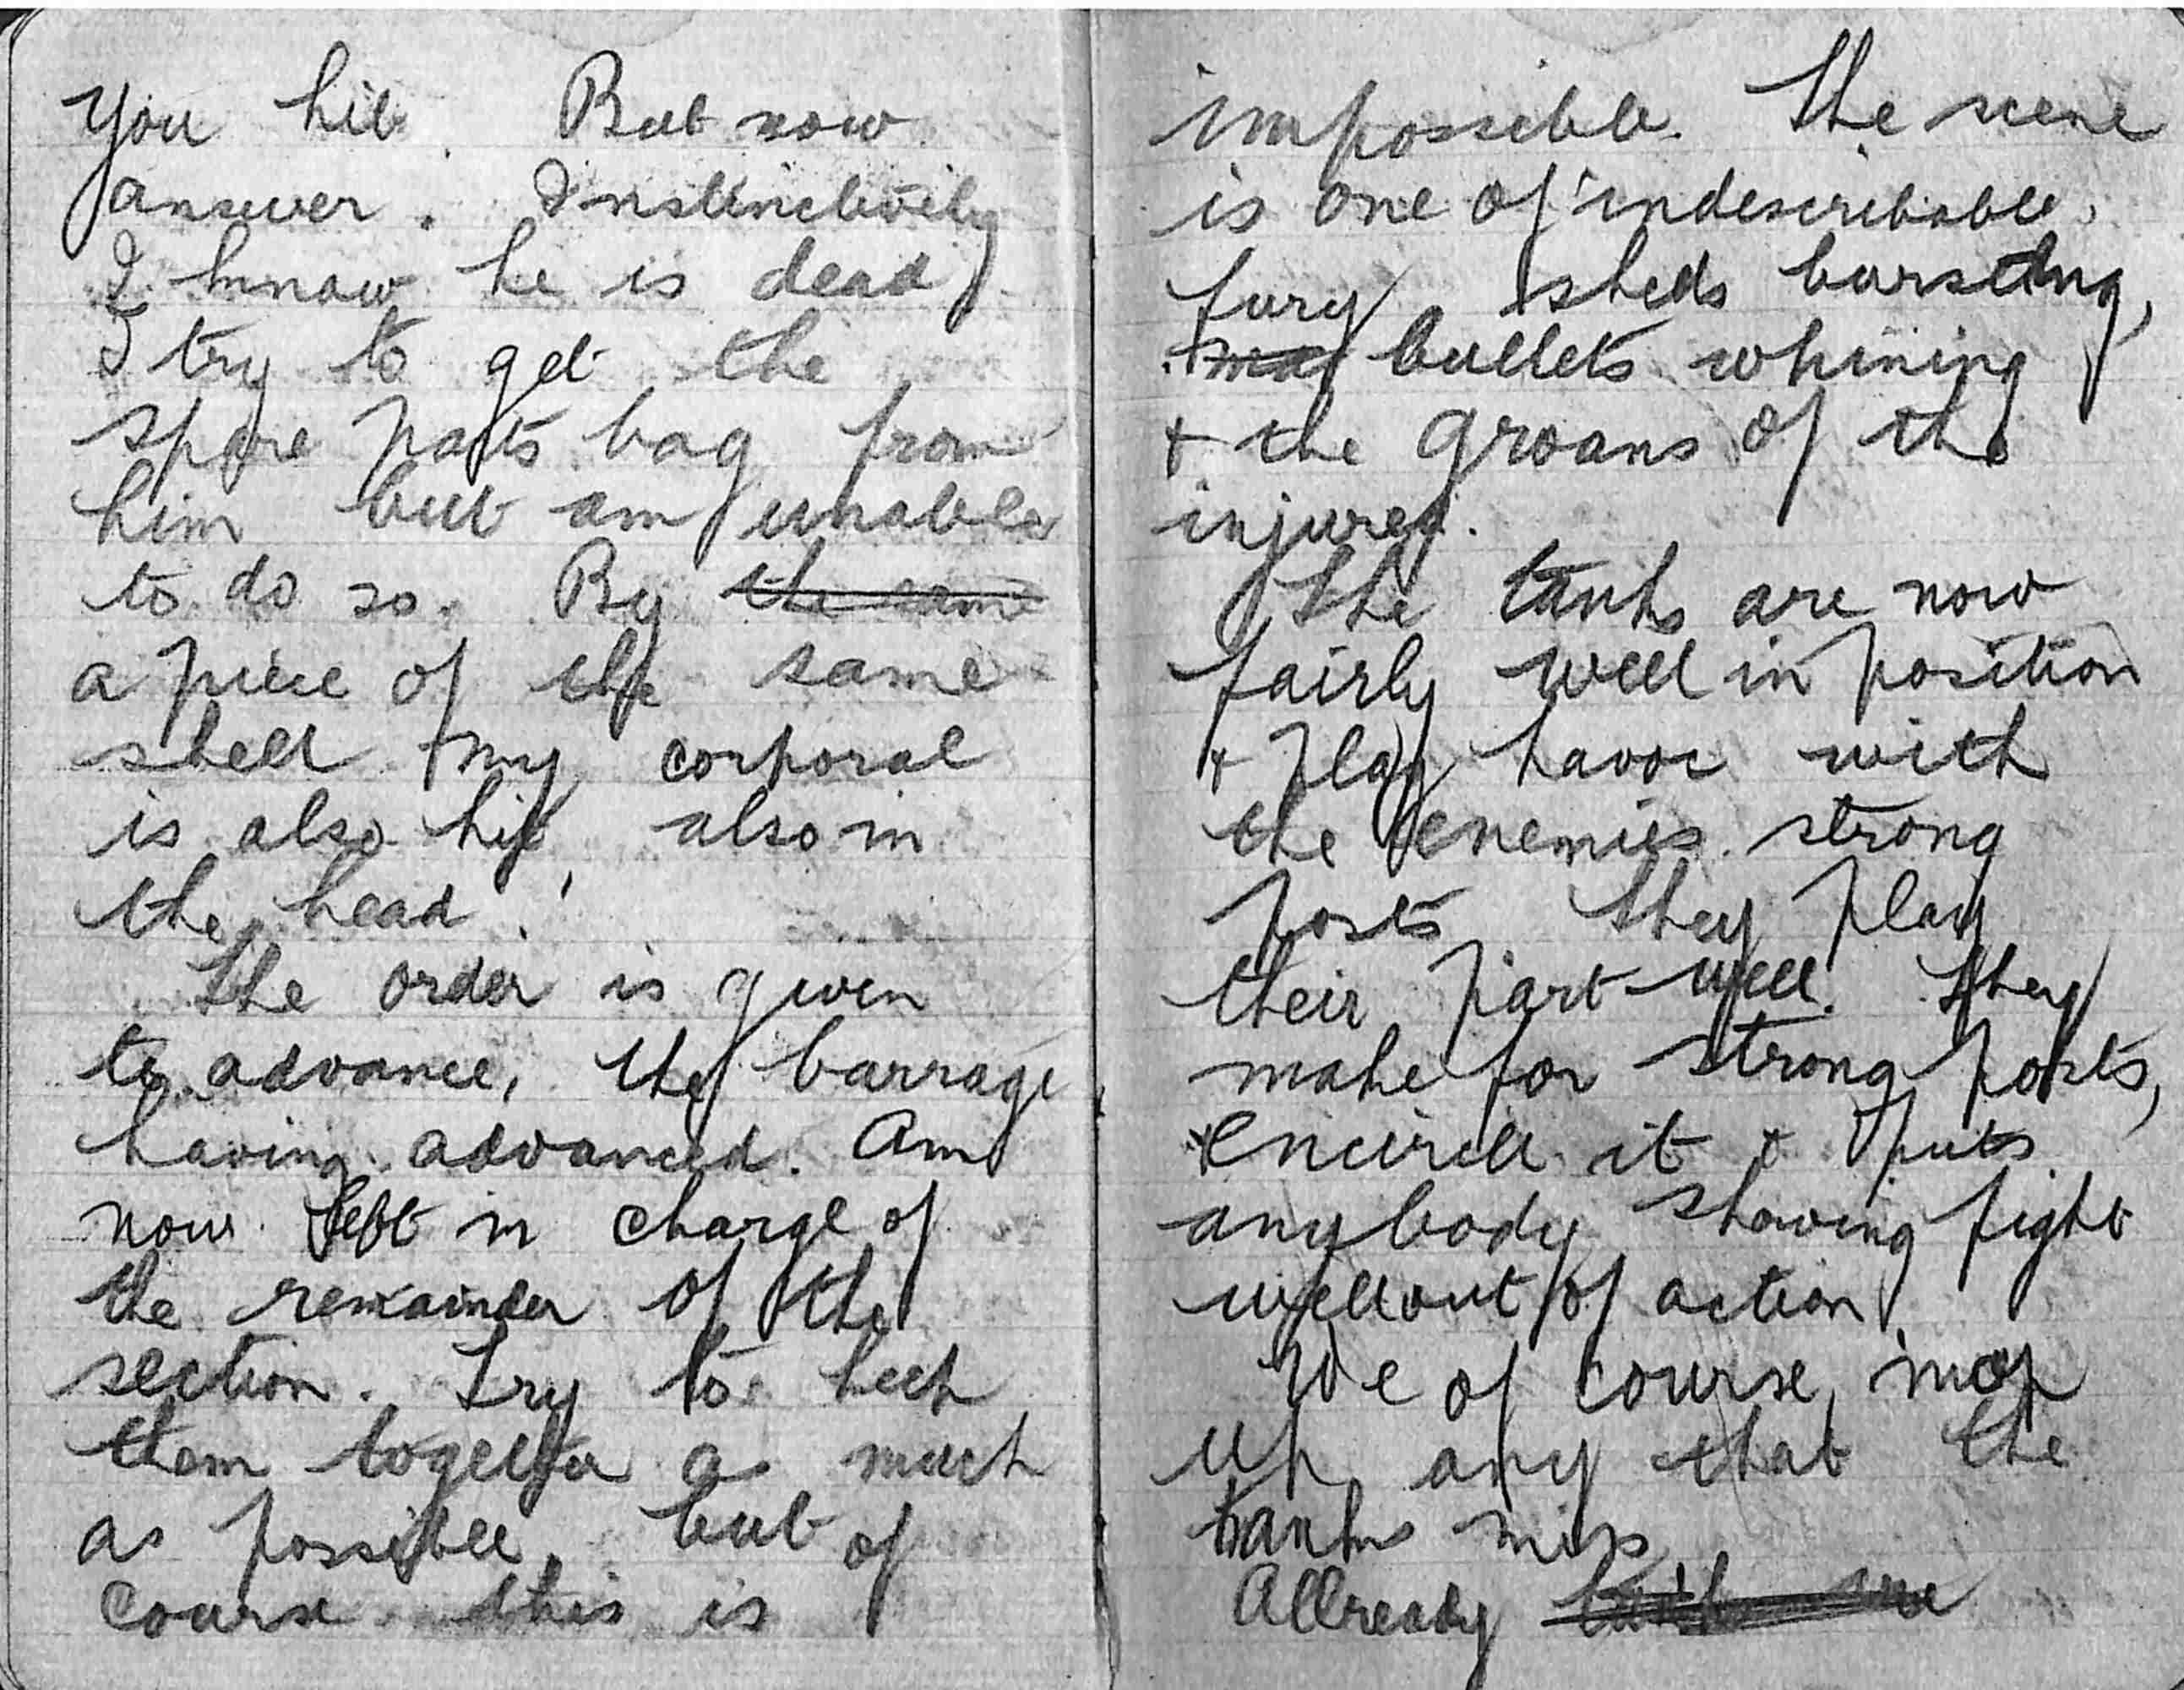 you hit. But now
answer. Instinctively
I know he is dead
I try to get the
spare parts bag from
him but am unable
to do so. By the same
a piece of the same
shell my corporal
is also hit, also in
the head!
The order is given
to advance, the barrage
having advanced. Am
now left in charge of
the remainder of the
section. Try to keep
them together as much
as possible, but of
course this is
impossible. The scene
is one of indescribable
fury shells bursting,
bullets whining
& the groans of the
injured.
The tanks are now
fairly well in position
& play havoc with
the enemies strong
posts they play
their part well. They
make for strong posts,
encircle it & puts
anybody showing fight
well out of action
We of course, mop
up any that the
tanks miss
Allready